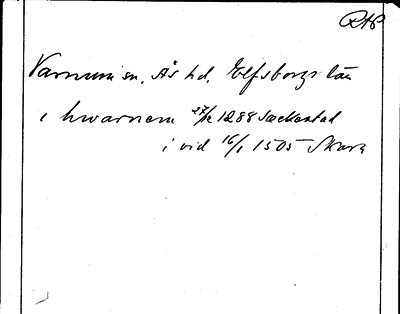 RAP
Varnum sn. Ås hd. Elfsborgs län
i hwarnem 27/12 1288 Sackestad
i vid 16/1 1505 Skara